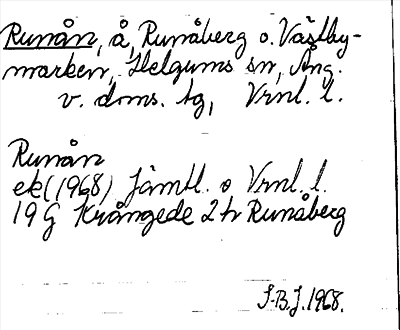 Runån, å, Runåberg o. Västby-
marken, Helgums sn, Ång.
v. doms. tg, Vrnl. l.
Runån
ek (1968) Jämtl. o Vrnl. l.
19 G Krångede 2 h Runåberg
S.B.J. 1968.